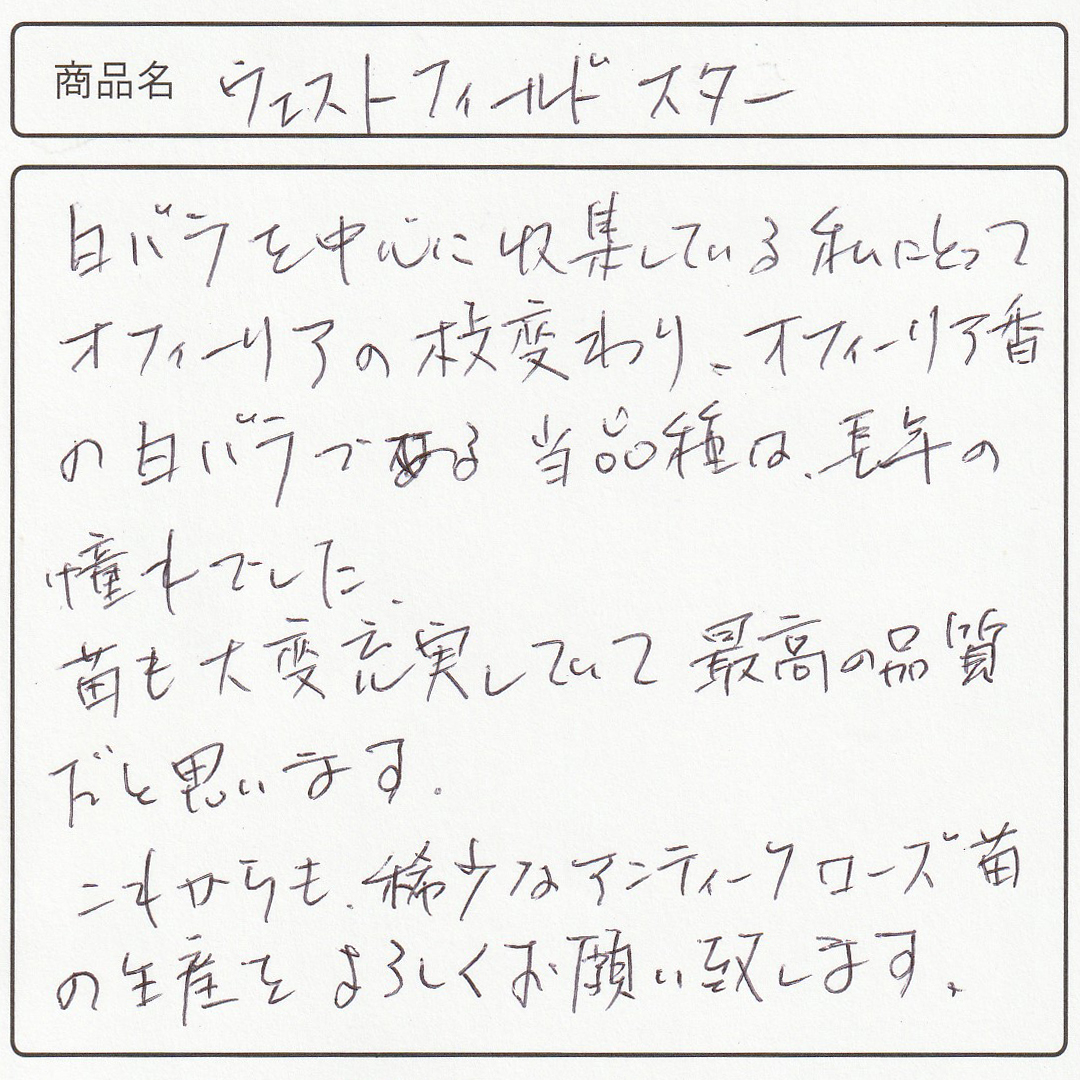 商品名 ウェストフィールド スター
白バラを中心に収集している私にとって
オフィーリアの枝変わり、オフィーリア香
の白バラである当品種は、長年の
憧れでした。
苗も大変充実していて最高の品質
だと思います。
これからも、稀少なアンティークローズ苗
の生産をよろしくお願い致します。